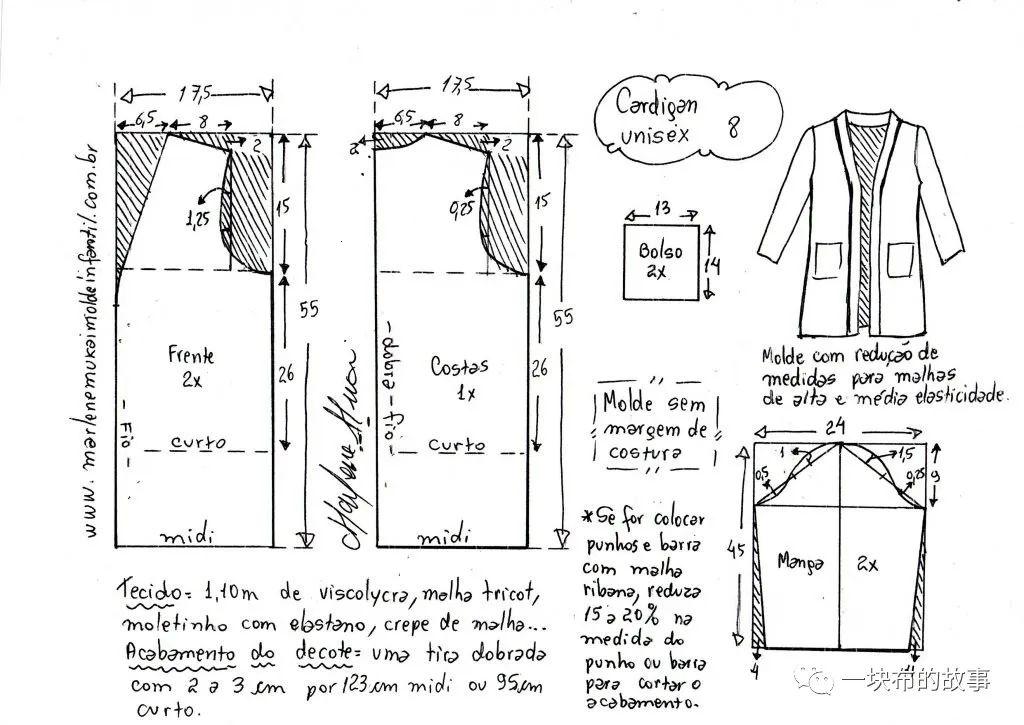 www.marlenemukaimoldeinfantil.com.br
17,5
6,5
8
2
1,25
15
26
55
Frente
2x
- Fio -
curto
midi
17,5
6,5
8
2
2
0,25
15
26
55
Costas
1x
- dobra - fio -
curto
midi
Cardigan
unisex 8
13
Bolso
2x
14
Molde com redução de
medidas para malhas
de alta e média elasticidade.
Molde sem
margem de
costura
24
1
1,5
0,5
0,25
9
45
Manga 2x
4
4
*Se for colocar
punhos e barra
com malha
ribana, reduza
15 a 20% na
medida do
punho ou barra
para cortar o
acabamento.
Tecido= 1,10m de viscolycra, malha tricot,
moletinho com elastano, crepe de malha...
Acabamento do decote= uma tira dobrada
com 2 a 3 cm por 123cm midi ou 95cm
curto.
一块布的故事